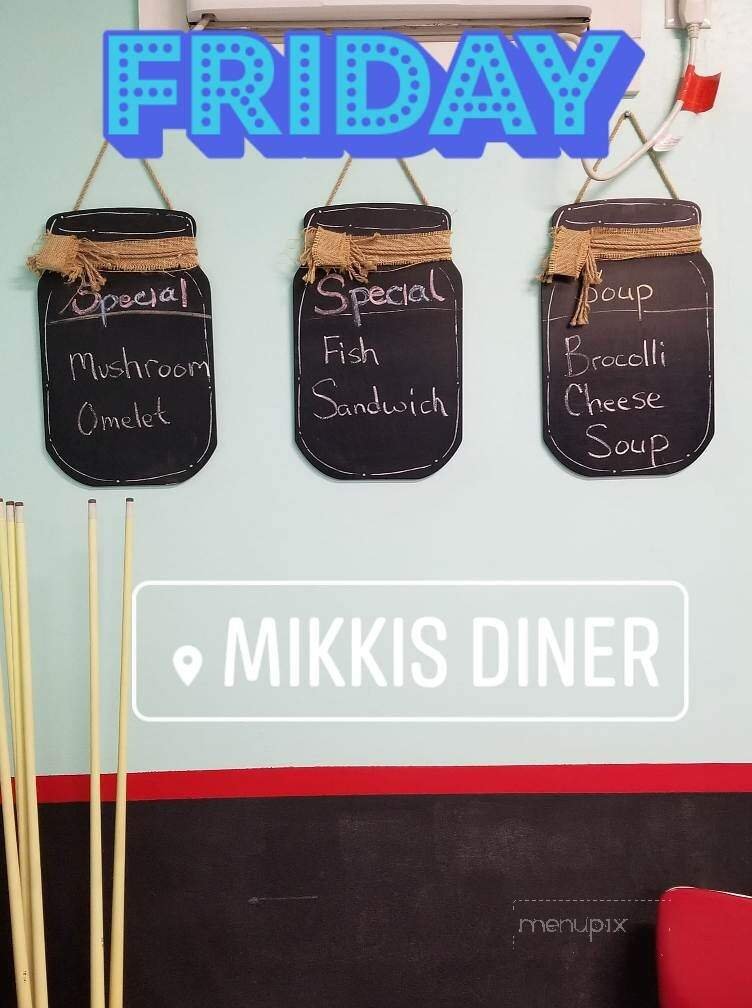 FRIDAY
Special
Mushroom
Omelet
Special
Fish
Sandwich
Soup
Brocolli
Cheese
Soup
MIKKIS DINER
menupix